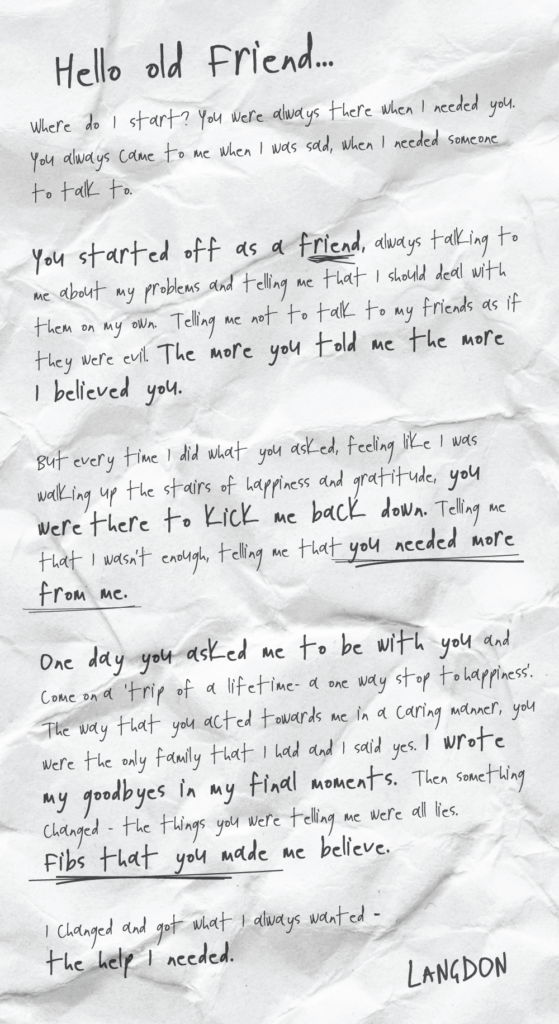 Hello old Friend...
Where do I start? You were always there when I needed you.
You always came to me when I was sad, when I needed someone
to talk to.
You started off as a friend, always talking to
me about my problems and telling me that I should deal with
them on my own. Telling me not to talk to my friends as if
they were evil. The more you told me the more
I believed you.
But every time I did what you asked, feeling like I was
walking up the stairs of happiness and gratitude, you
were there to kick me back down. Telling me
that I wasn't enough, telling me that you needed more
from me.
One day you asked me to be with you and
come on a 'trip of a lifetime- a one way stop to happiness'.
The way that you acted towards me in a caring manner, you
were the only family that I had and I said yes. I wrote
my goodbyes in my final moments. Then something
changed - the things you were telling me were all lies.
Fibs that you made me believe.
I changed and got what I always wanted -
the help I needed.
LANGDON